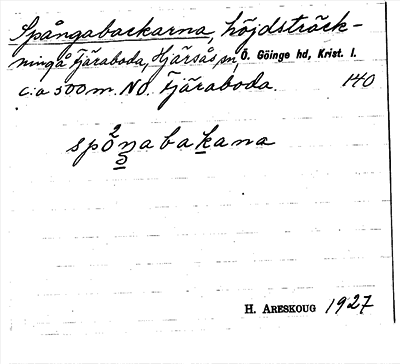 Spångabackarna, höjdsträck-
ning å Fjäraboda, Hjärsås sn, Ö. Göinge hd, Krist. l.
c:a 500 m. NO. Fjäraboda. 140
spånabakana
2
o
H. ARESKOUG 1927